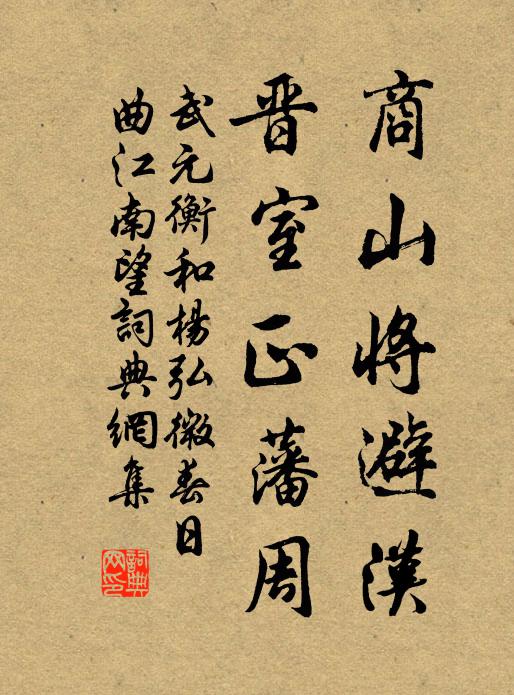 商山將避漢
晋室正藩周
武元衡和楊弘微春日
曲江南望詞典網集
詞典網印